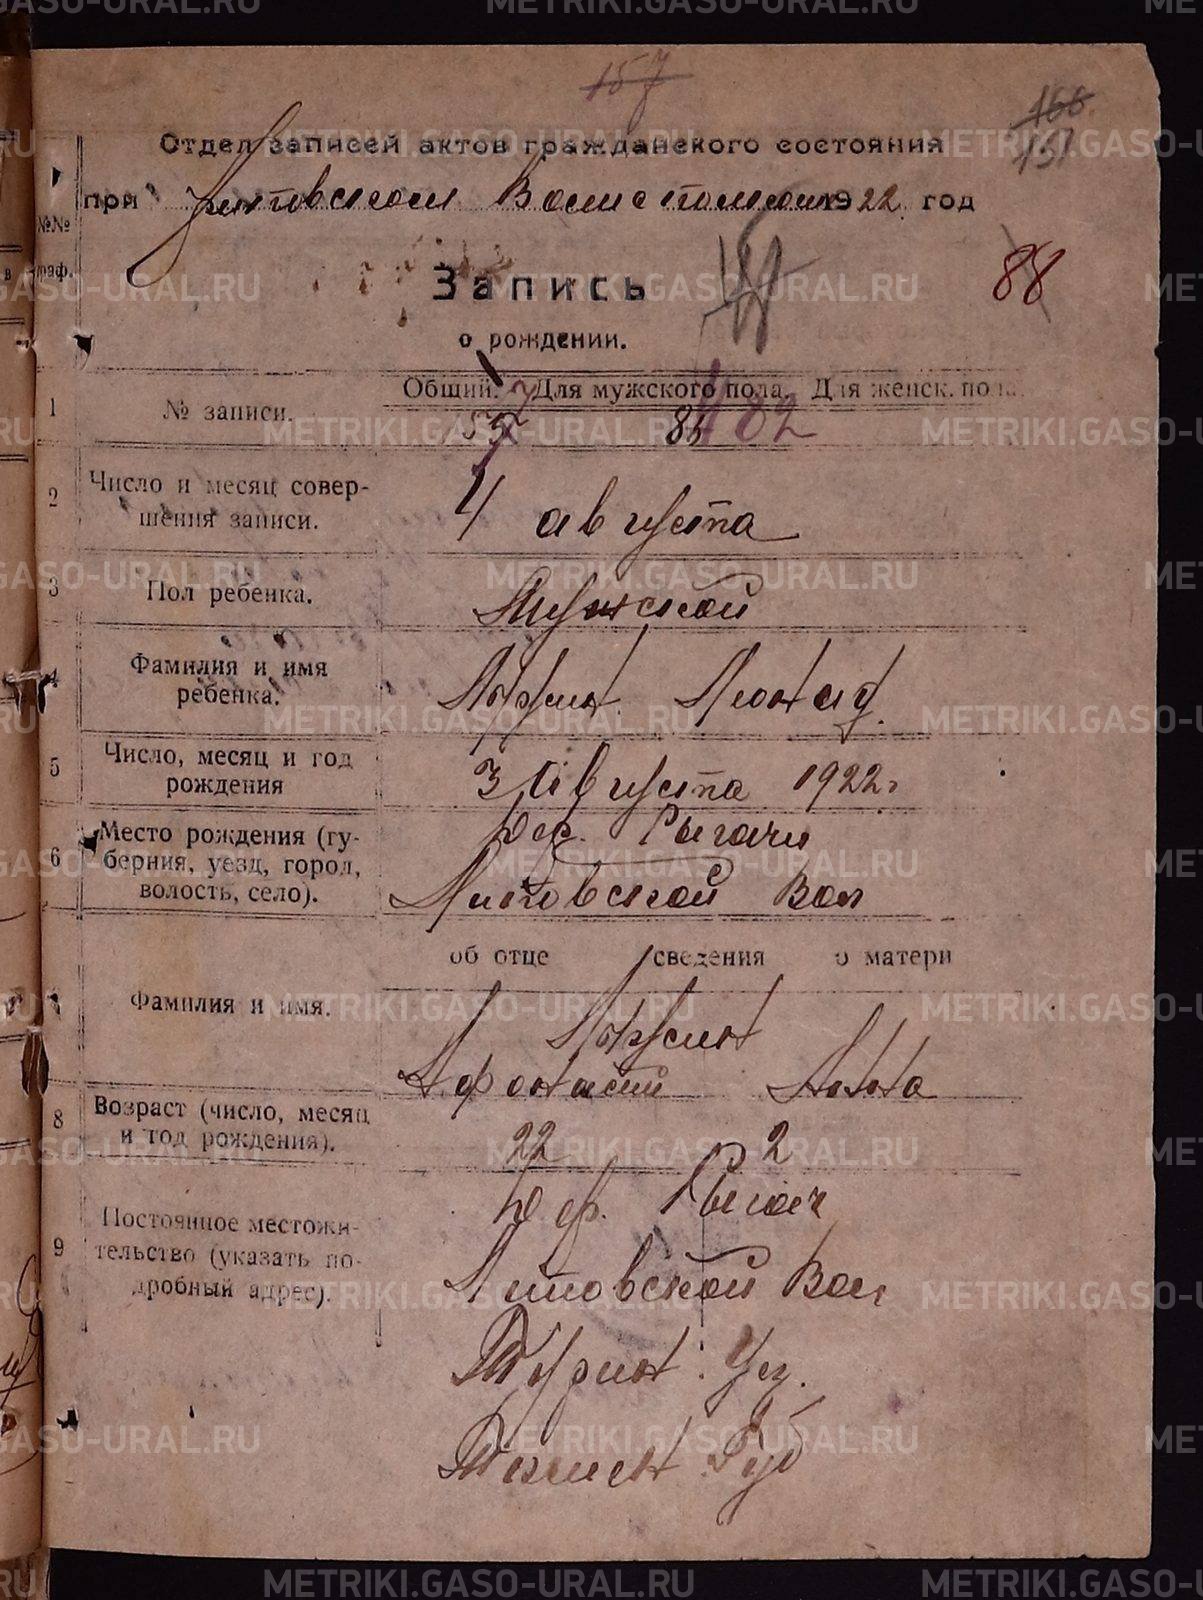 157
166
151
Отдел записей актов гражданского состояния
при Липовском Волисполкоме 1922 год
№№ граф.
88
Запись
о рождении.
1 № записи. Общий. Для мужского пола. Для женск. пола.
157 82
2 Число и месяц совер-
шения записи.
4 августа
3 Пол ребенка. Мужской
4 Фамилия и имя
ребенка.
Леонид
5 Число, месяц и год
рождения
3 августа 1922 г
6 Место рождения (гу-
берния, уезд, город,
волость, село).
дер. Рычачи
Липовской вол
об отце сведения о матери
Фамилия и имя.
Афонасий Анна
8 Возраст (число, месяц
и год рождения).
22 2
9 Постоянное местожи-
тельство (указать по-
дробный адрес).
дер.
Липовской вол
Турин. Уез.
Тюмен. Губ